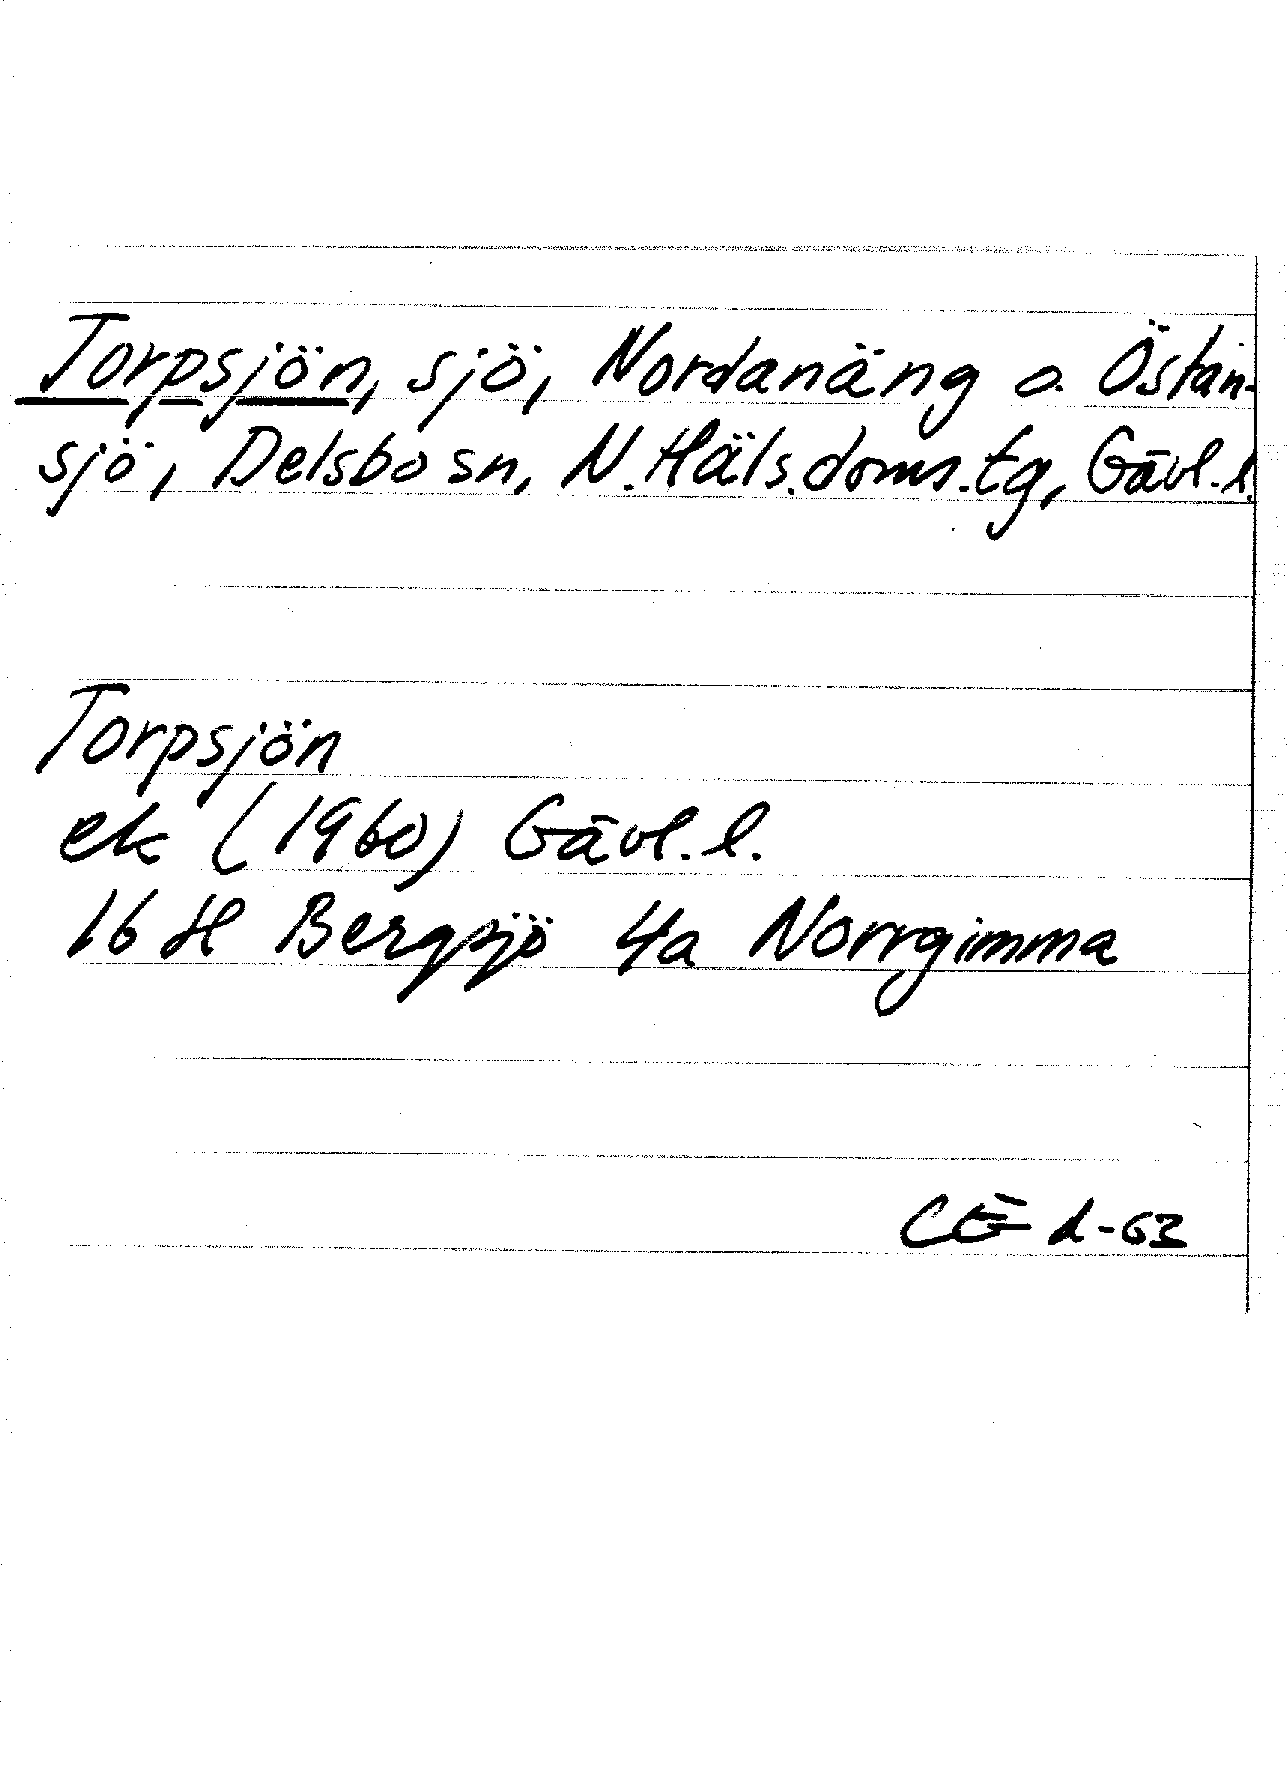 Torpsjön, sjö, Nordanäng o. Östan-
sjö, Delsbo sn, N. Häls. doms. tg, Gävl. l.
Torpsjön
ek (1960) Gävl. l.
16 H Bergsjö 4a Norrgimma
CE d-63